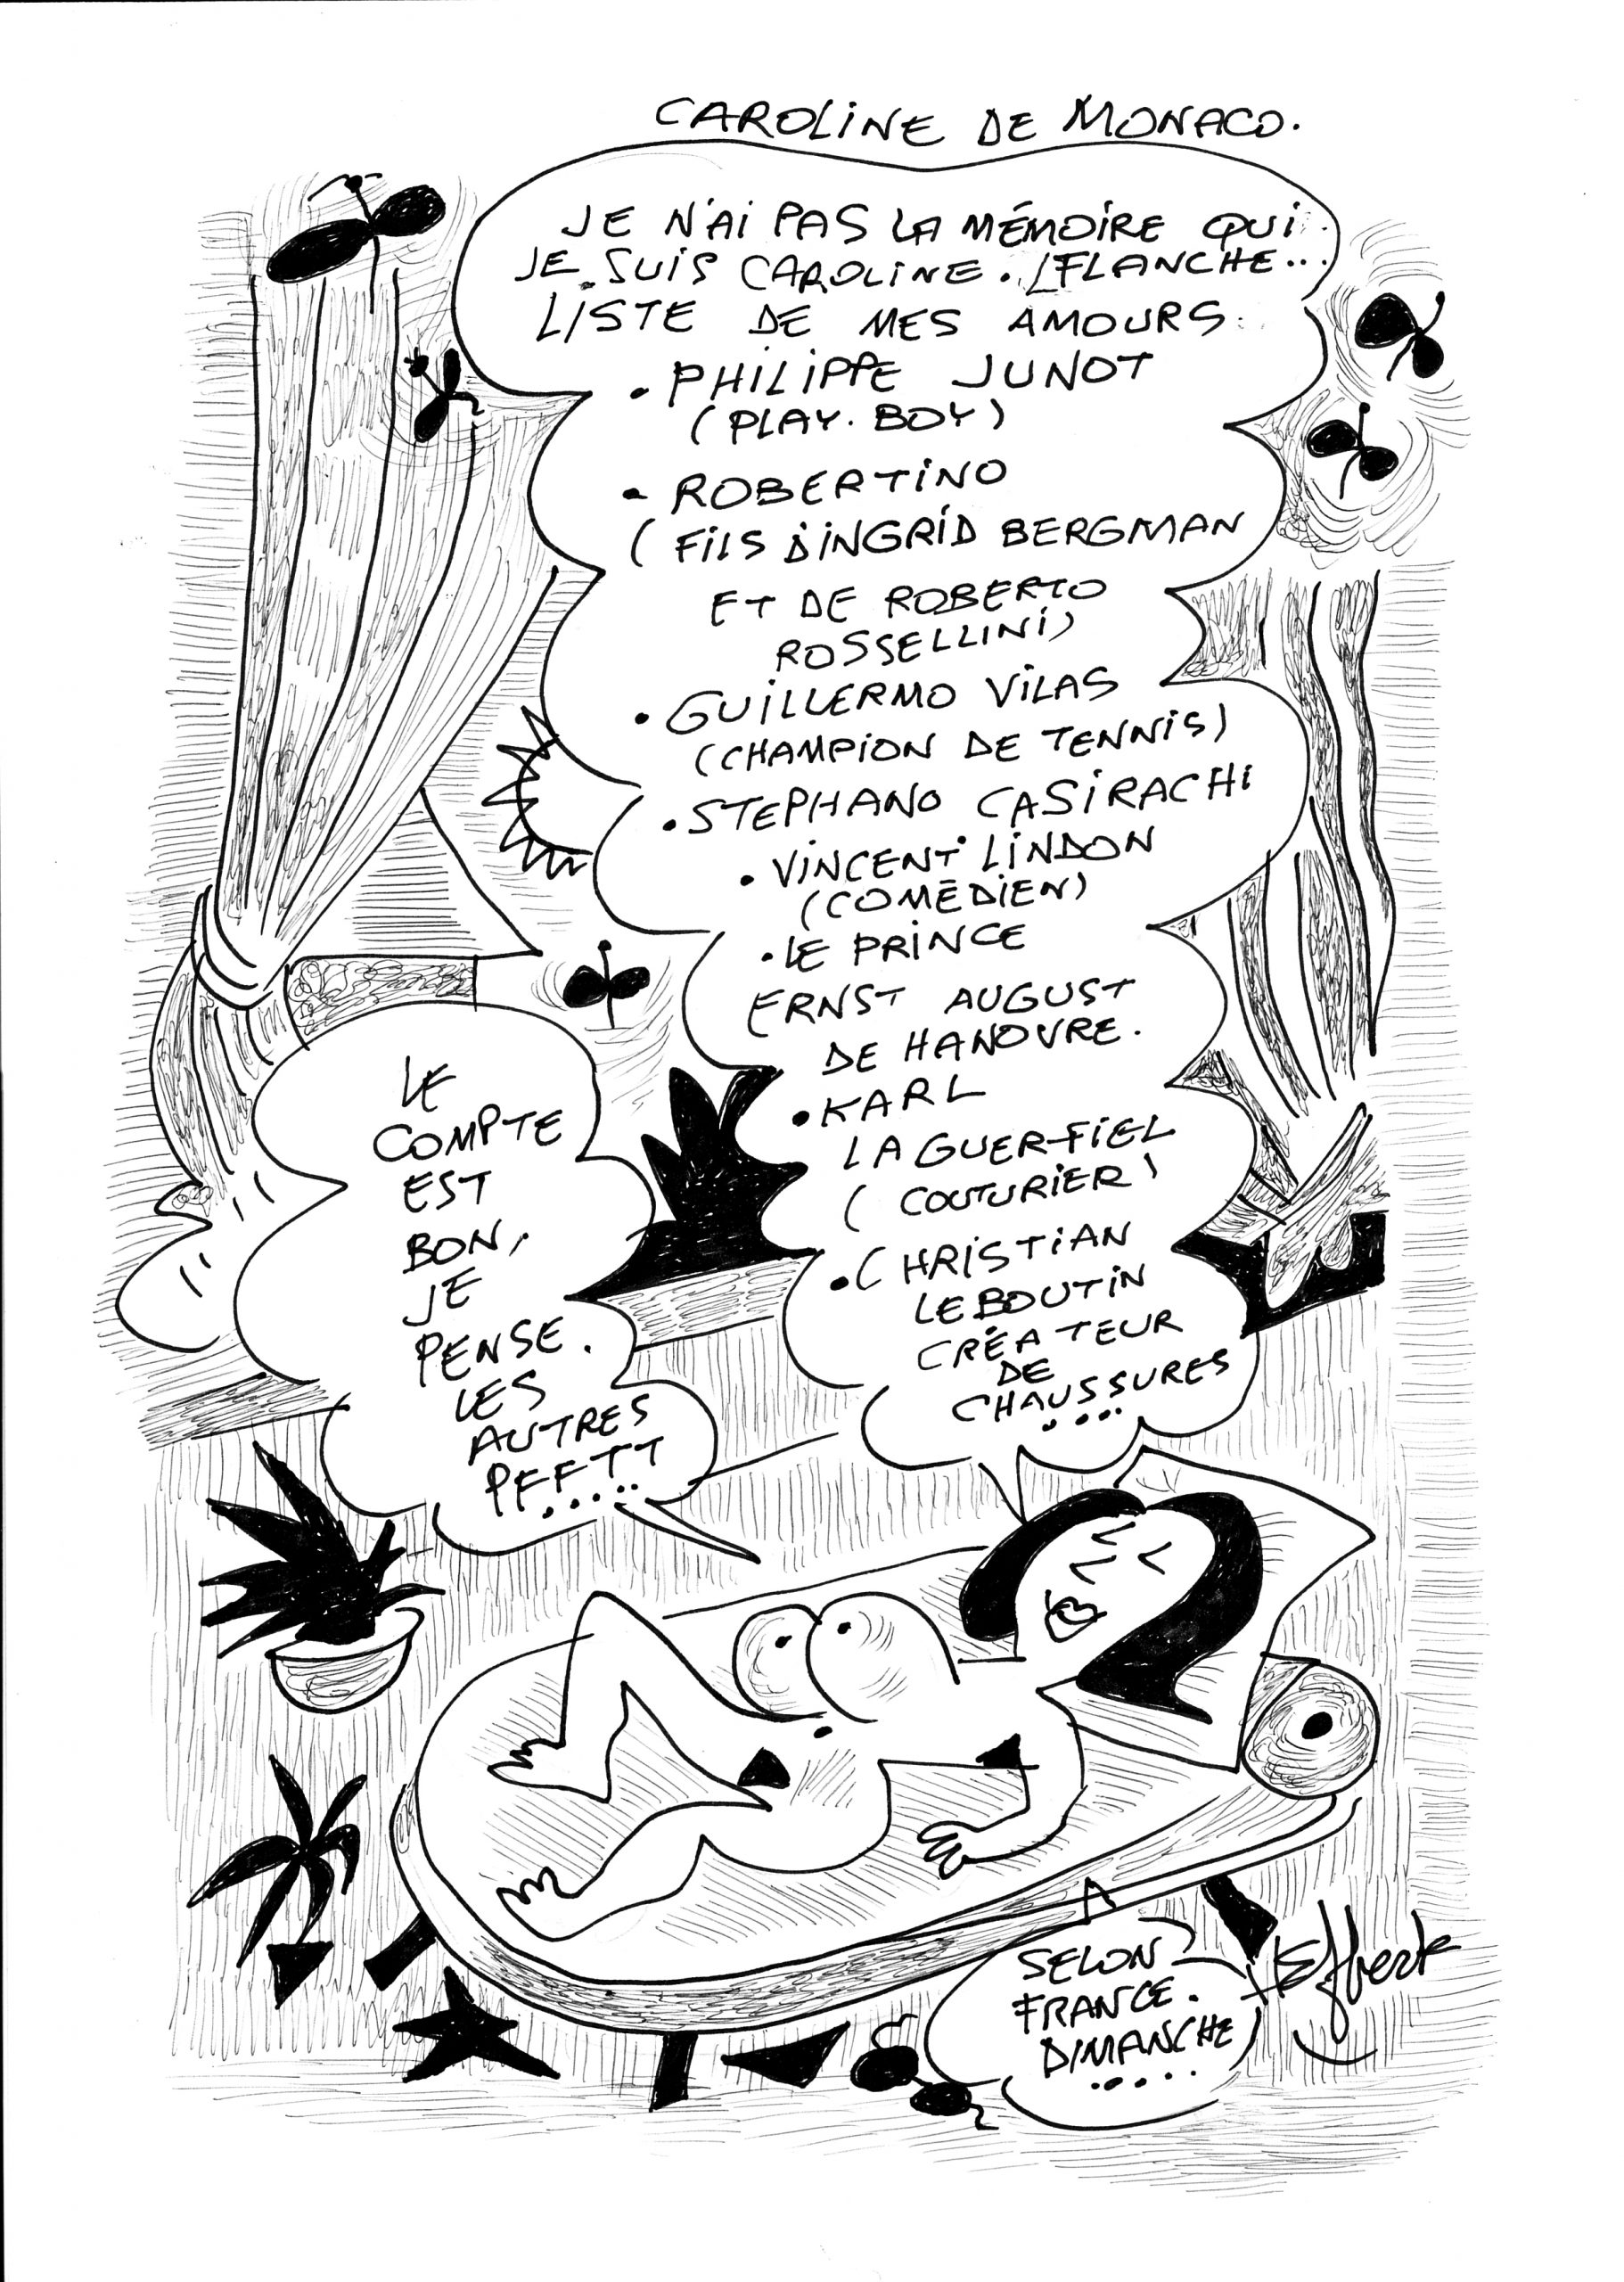 CAROLINE DE MONACO.
JE N'AI PAS LA MÉMOIRE QUI
JE SUIS CAROLINE. FLANCHE...
LISTE DE MES AMOURS:
• PHILIPPE JUNOT
(PLAY. BOY)
- ROBERTINO
(FILS D'INGRID BERGMAN
ET DE ROBERTO
ROSSELLINI)
• GUILLERMO VILAS
(CHAMPION DE TENNIS)
• STEPHANO CASIRACHI
• VINCENT LINDON
(COMÉDIEN)
• LE PRINCE
ERNST AUGUST
DE HANOVRE.
• KARL
LAGUER-FIEL
(COUTURIER)
• CHRISTIAN
LEBOUTIN
CRÉATEUR
DE
CHAUSSURES
....
LE
COMPTE
EST
BON,
JE
PENSE.
LES
AUTRES
PFFTT
.....
SELON
FRANCE.
DIMANCHE
.....